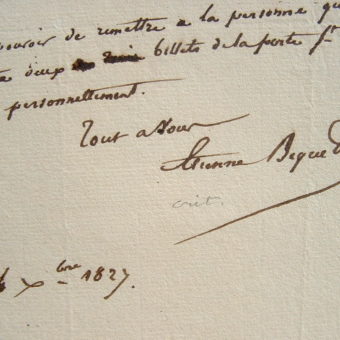 pouvoir de remettre a la personne qu
deux billets de la porte St
personnellement.
Tout a vous
Etienne Bequet
crit.
Xbre 1827.